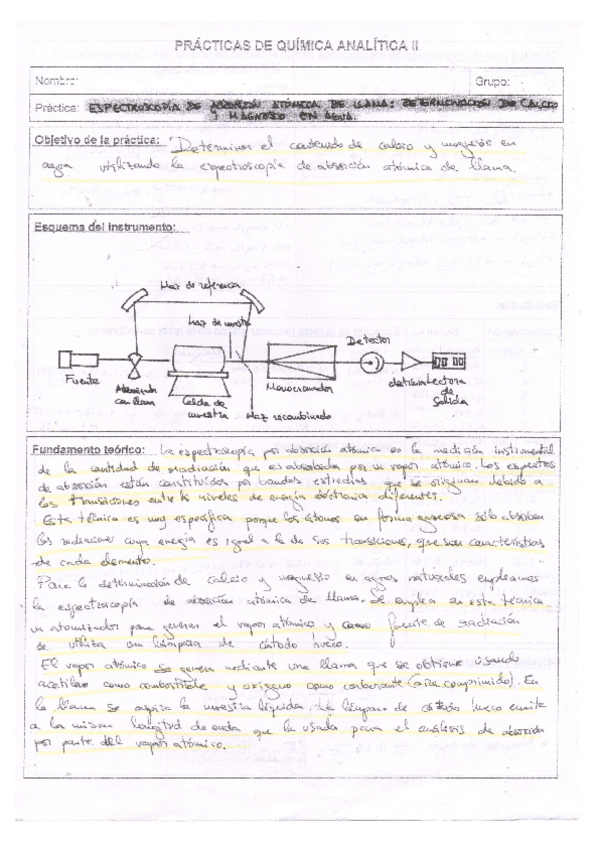 PRÁCTICAS DE QUÍMICA ANALÍTICA II
Nombre:
Grupo:
Práctica: ESPECTROSCOPÍA DE ABSORCIÓN ATÓMICA DE LLAMA: DETERMINACIÓN DE CALCIO
Y MAGNESIO EN AGUA.
Objetivo de la práctica: Determinar el contenido de calcio y magnesio en
agua utilizando la espectroscopía de absorción atómica de llama.
Esquema del instrumento:
Haz de referencia
haz de muestra
Detector
Fuente
Atenuador
con llama
Celda de
muestra
Haz recombinado
Monocromador
Lectora
de
Salida
Fundamento teórico: La espectroscopía por absorción atómica es la medición instrumental
de la cantidad de radiación que es absorbida por un vapor atómico. Los espectros
de absorción están constituidos por bandas estrechas que se originan debido a
las transiciones entre los niveles de energía electrónica diferentes.
Esta técnica es muy específica porque los átomos en forma gaseosa sólo absorben
las radiaciones cuya energía es igual a la de sus transiciones, que son características
de cada elemento.
Para la determinación de calcio y magnesio en aguas naturales empleamos
la espectroscopía de absorción atómica de llama. Se emplea en esta técnica
un atomizador para generar el vapor atómico y como fuente de radiación
se utiliza una lámpara de cátodo hueco.
El vapor atómico se genera mediante una llama que se obtiene usando
acetileno como combustible y oxígeno como comburente (aire comprimido). En
la llama se aspira la muestra líquida. La lámpara de cátodo hueco emite
a la misma longitud de onda que la usada para el análisis de absorción
por parte del vapor atómico.